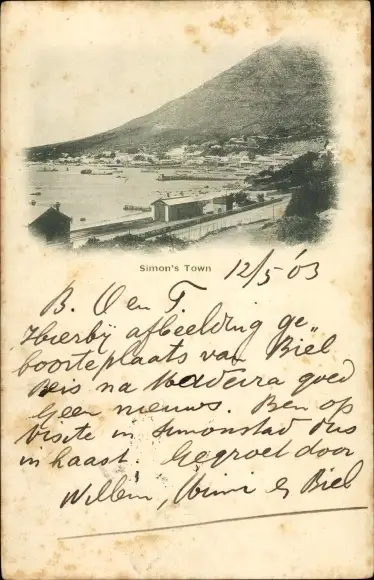 Simon's Town
12/5 '03
B. O en T.
Hierbij afbeelding ge„
boorteplaats van Biel
Reis na Madeira goed
Geen nieuws. Ben op
visite in Simonstad dus
in haast. Gegroet door
Willem, Wimi & Biel